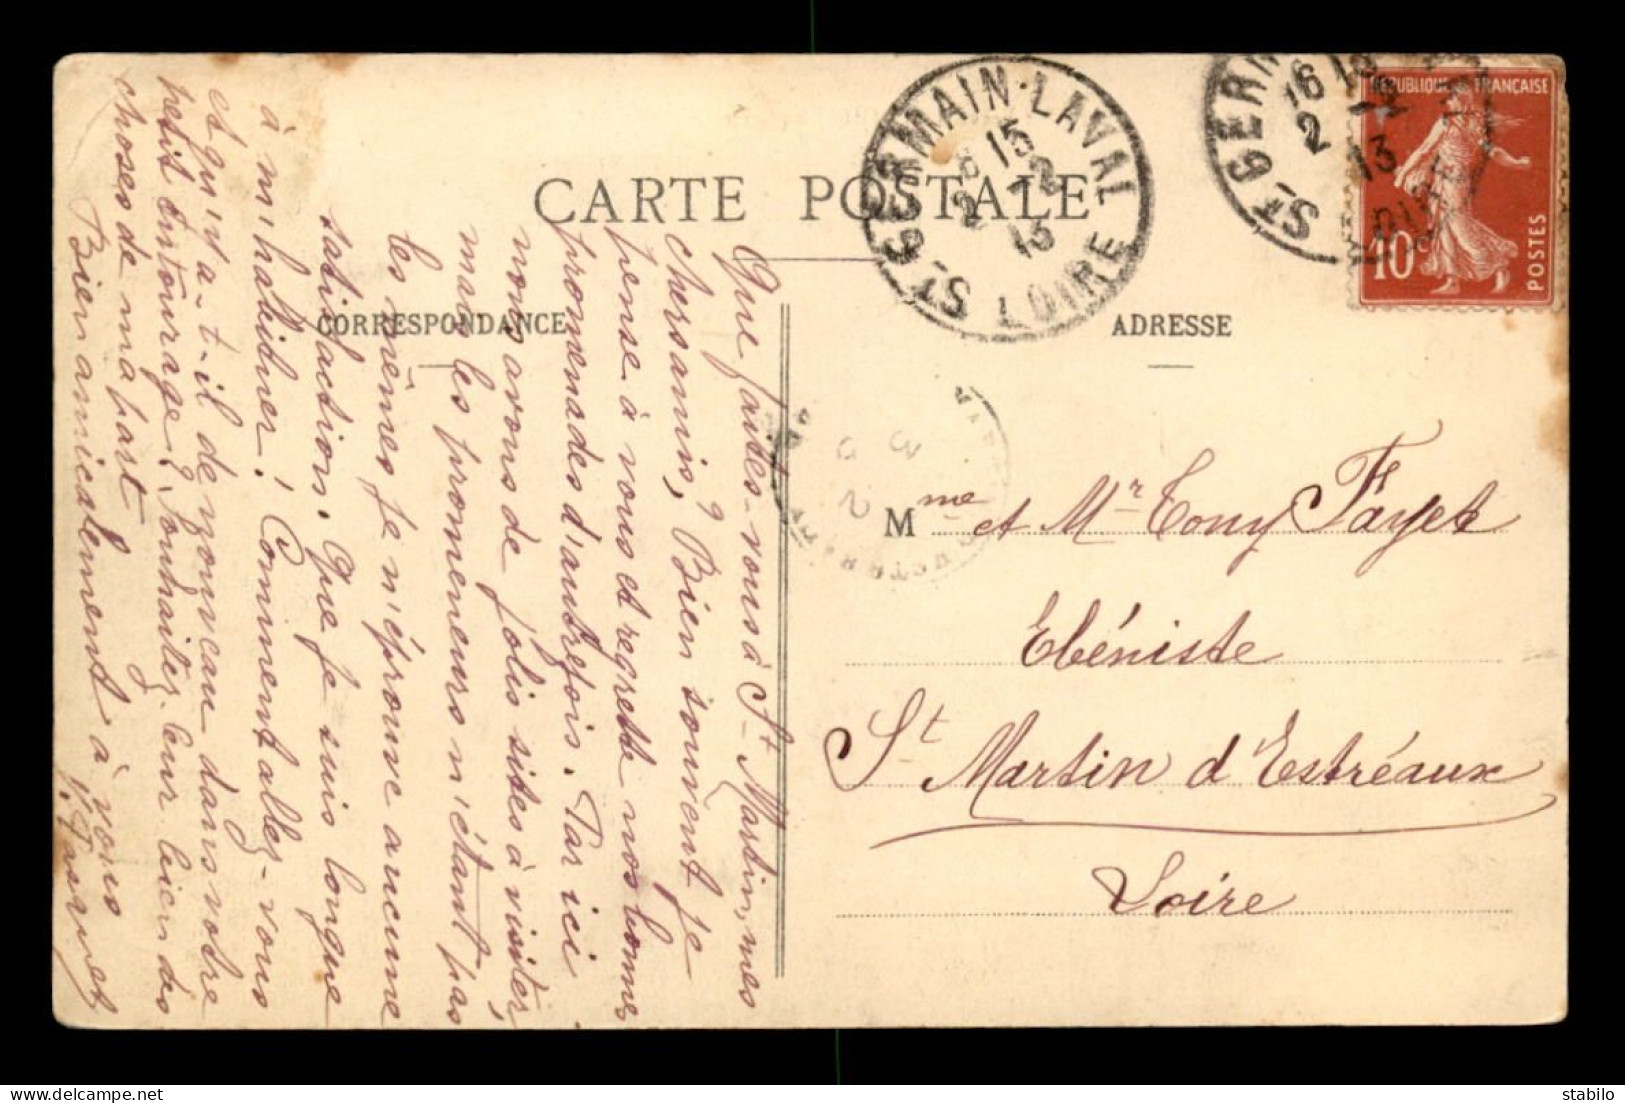 CARTE POSTALE
CORRESPONDANCE
ADRESSE
ST GERMAIN-LAVAL
15
2 - 2
13
LOIRE
ST GERM
16 15
2 - 2
13
LOIRE
REPUBLIQUE FRANÇAISE
10c
POSTES
Mme et Mr Tony Fayet
Ebéniste
St Martin d'Estréaux
Loire
Que faites-vous à St Martin, mes
chers amis, ? Bien souvent je
pense à vous et regrette nos bonnes
promenades d'autrefois. Par ici
nous avons de jolis sites à visiter,
mais les promeneurs n'étant pas
les mêmes je n'éprouve aucune
satisfaction. Que je suis longue
à m'habituer! Comment allez-vous
et qu'y a-t-il de nouveau dans votre
petit entourage? Souhaitez leur bien des
choses de ma part
Bien amicalement à vous